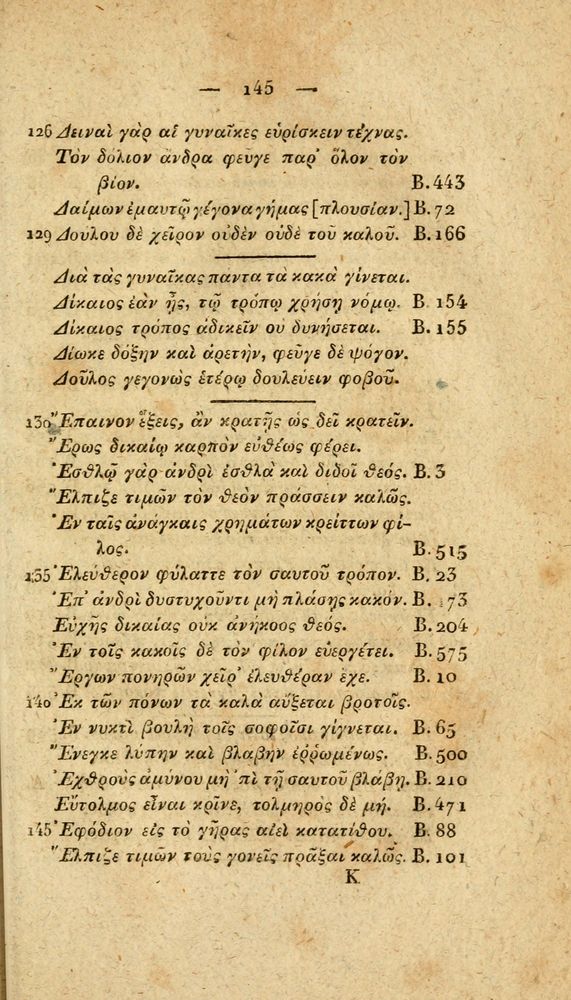 — 145 —
126 Δειναὶ γὰρ αἱ γυναῖκες εὑρίσκειν τέχνας.
Τὸν δόλιον ἄνδρα φεῦγε παρ' ὅλον τὸν
βίον. B. 443
Δαίμων ἐμαυτῷ γέγονα γήμας [πλουσίαν.] B. 72
129 Δούλου δὲ χεῖρον οὐδὲν οὐδὲ τοῦ καλοῦ. B. 166
Διὰ τὰς γυναῖκας πάντα τὰ κακὰ γίνεται.
Δίκαιος ἐὰν ᾖς, τῷ τρόπῳ χρήσῃ νόμῳ. B 154
Δίκαιος τρόπος ἀδικεῖν οὐ δυνήσεται. B. 155
Δίωκε δόξην καὶ ἀρετήν, φεῦγε δὲ ψόγον.
Δοῦλος γεγονὼς ἑτέρῳ δουλεύειν φοβοῦ.
130 Ἔπαινον ἕξεις, ἂν κρατῇς ὡς δεῖ κρατεῖν.
Ἔρως δικαίῳ καρπὸν εὐθέως φέρει.
Ἐσθλῷ γὰρ ἀνδρὶ ἐσθλὰ καὶ διδοῖ θεός. B. 3
Ἔλπιζε τιμῶν τὸν θεὸν πράσσειν καλῶς.
Ἐν ταῖς ἀνάγκαις χρημάτων κρείττων φί-
λος. B. 515
135 Ἐλεύθερον φύλαττε τὸν σαυτοῦ τρόπον. B. 23
Ἐπ' ἀνδρὶ δυστυχοῦντι μὴ πλάσῃς κακόν. B. 173
Εὐχῆς δικαίας οὐκ ἀνήκοος θεός. B. 204
Ἐν τοῖς κακοῖς δὲ τὸν φίλον εὐεργέτει. B. 575
Ἔργων πονηρῶν χεῖρ' ἐλευθέραν ἔχε. B. 10
140 Ἐκ τῶν πόνων τὰ καλὰ αὔξεται βροτοῖς.
Ἐν νυκτὶ βουλὴ τοῖς σοφοῖσι γίγνεται. B. 65
Ἔνεγκε λύπην καὶ βλαβὴν ἐῤῥωμένως. B. 500
Ἐχθροὺς ἀμύνου μὴ 'πὶ τῇ σαυτοῦ βλάβῃ. B. 210
Εὔτολμος εἶναι κρῖνε, τολμηρὸς δὲ μή. B. 471
145 Ἐφόδιον εἰς τὸ γῆρας αἰεὶ κατατίθου. B. 88
Ἔλπιζε τιμῶν τοὺς γονεῖς πρᾶξαι καλῶς. B. 101
K